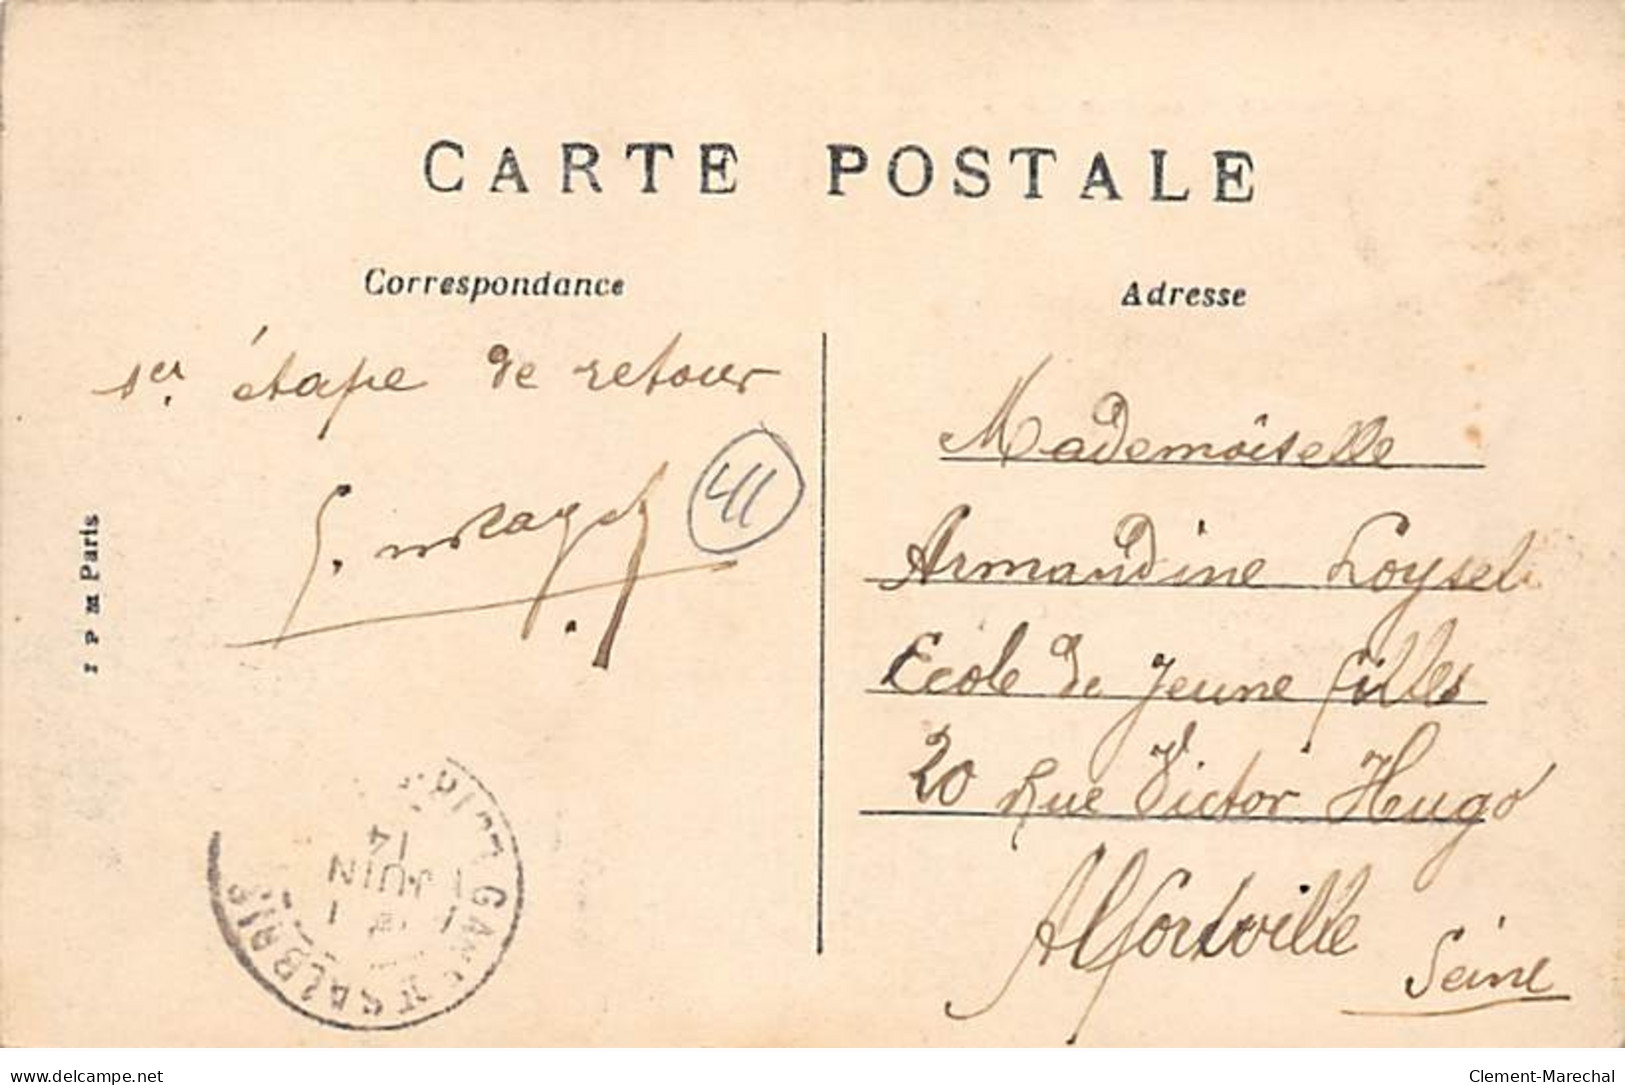 CARTE POSTALE
Correspondance
Adresse
1er étape de retour
41
I P M Paris
Mademoiselle
Armandine Loysel
Ecole de Jeune filles
20 Rue Victor Hugo
Alfortville
Seine
14
JUIN
SALBRIS
delcampe.net
Clement-Marechal